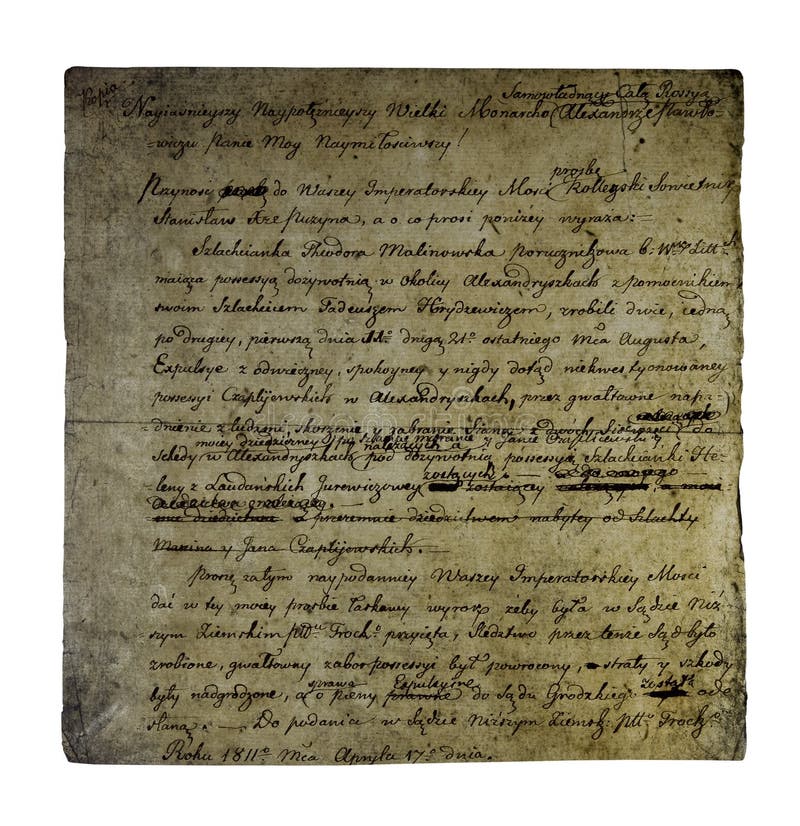 Kopia
Samowładnący Całą Rossyą
Nayiaśnieyszy Naypotężnieyszy Wielki Monarcho Alexandrze Pawło-
-wiczu Panie Moy Naymiłościwszy!
prośbę
Przynosi do Waszey Imperatorskiey Mości Kollegski Sowietnik
Stanisław Puzyna, a o co prosi poniżey wyraża:
Szlachcianka Theodora Malinowska Porucznikowa b: W Litt
maiąca possessyą dożywotnią w okolicy Alexandryszkach z pomocnikiem
swoim Szlachcicem Tadeuszem Hrydzewiczem, zrobili dwie, iedną
po drugiey, pierwszą dnia 11o drugą 21o ostatniego Mca Augusta,
Expulsye z odwieczney, spokoyney y nigdy dotąd niekwestyonowaney
possessyi Czaplijewskich w Alexandryszkach, przez gwałtowne napa-
dnienie z ludzmi, skoszenie y zabranie Siana z dwóch Sianożęci do
moiey dziedziczney y po Szlachcie Marcinie y Janie Czaplijewskich
należących
Schedy w Alexandryszkach pod dożywotnią possessyą Szlachcianki He-
leny z Laudańskich Jurewiczowey zostaiących zostaiącey
a przezemnie dziedzictwem nabytey od Szlachty
Marcina y Jana Czaplijewskich.
Proszę zatym naypodanniey Waszey Imperatorskiey Mości
dać w tey moiey prośbie łaskawy wyrok żeby była w Sądzie Niż-
szym Ziemskim pttu Trocko przyięta, śledztwo przez tenże Sąd było
zrobione, gwałtowny zabor possessyi był powrocony, straty y szkody
były nadgrodzone, a sprawa o pieny Expulsyine prawne do Sądu Grodzkiego została ode
słaną. — Do podania w Sądzie Niższym Ziemsk: pttu Trocko
Roku 1811o Mca Apryla 17o dnia.